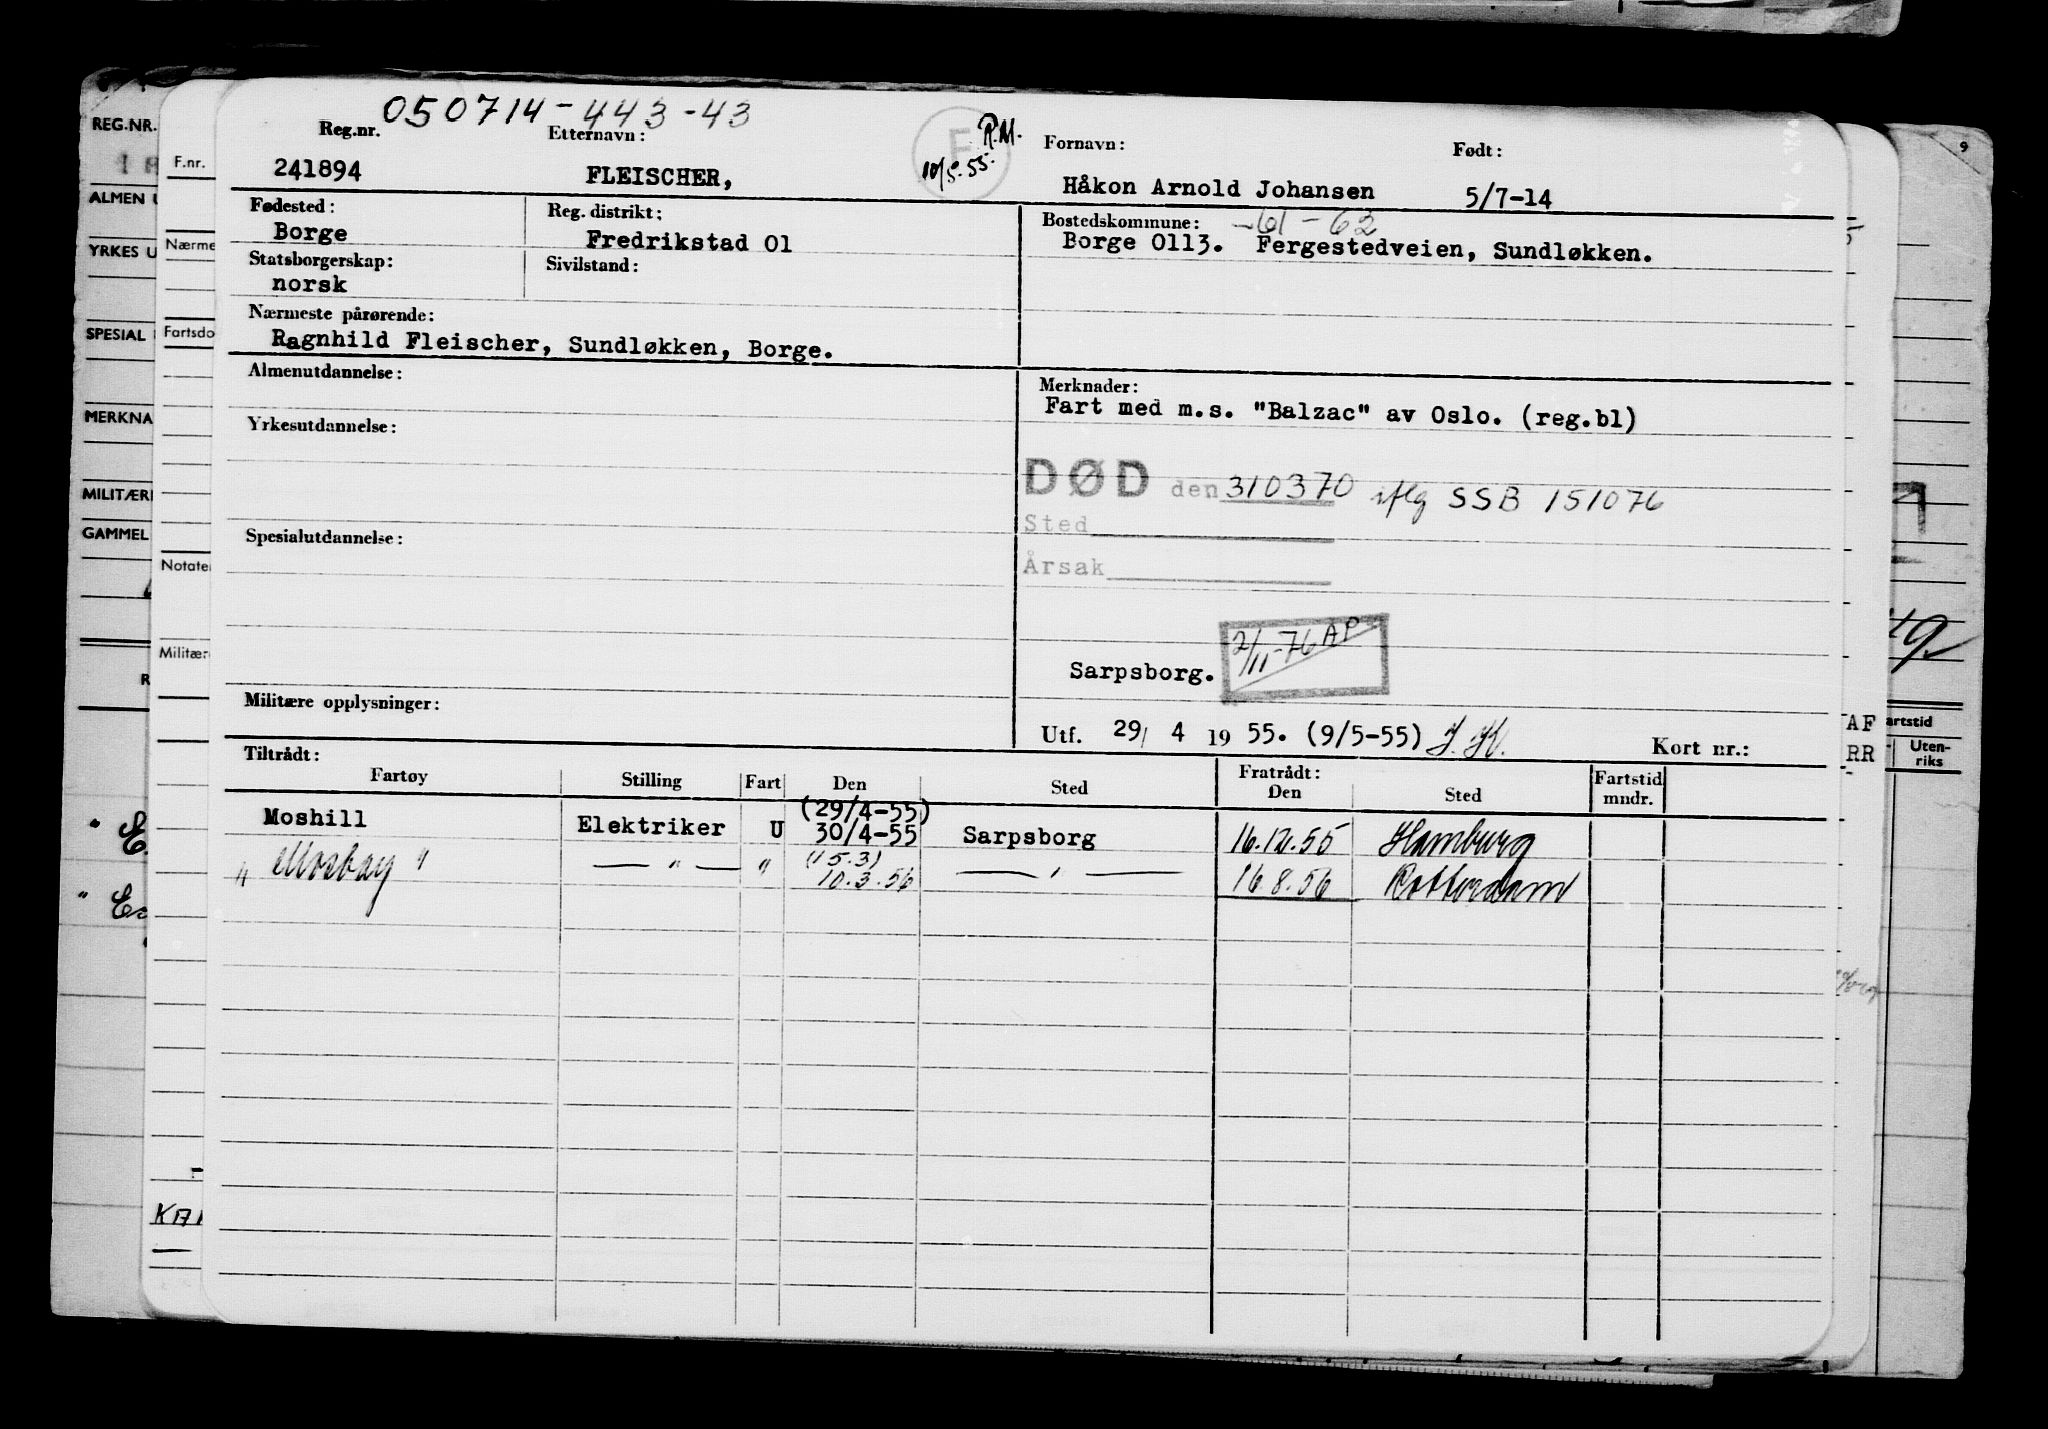 050714-443-43
Reg.nr. Etternavn: Fornavn: Født:
241894 FLEISCHER, F R.M. 10/5-55. Håkon Arnold Johansen 5/7-14
Fødested: Reg. distrikt: Bostedskommune: -61-62
Borge Fredrikstad 01 Borge 0113. Fergestedveien, Sundløkken.
Statsborgerskap: Sivilstand:
norsk
Nærmeste pårørende:
Ragnhild Fleischer, Sundløkken, Borge.
Almenutdannelse: Merknader:
Fart med m.s. "Balzac" av Oslo. (reg.bl)
Yrkesutdannelse:
DØD den 310370 iflg SSB 151076
Sted
Spesialutdannelse:
Årsak
Sarpsborg. 2/11-76 AP
Militære opplysninger:
Utf. 29/ 4 1955. (9/5-55) Kort nr.:
Tiltrådt: Fratrådt:
Fartøy Stilling Fart Den Sted Den Sted Fartstid mndr.
Moshill Elektriker U (29/4-55) 30/4-55 Sarpsborg 16.12.55 Hamburg
" Mosbay " — " — " (15.3) 10.3.56 — " — 16.8.56 Rotterdam
REG.NR.
ALMEN U
YRKES U
SPESIAL
MERKNA
MILITÆR
GAMMEL
R
F.nr.
Nærme
Fartsdo
Notate
Militær
KAI
9
49
AF
RR
artstid
Uten-
riks